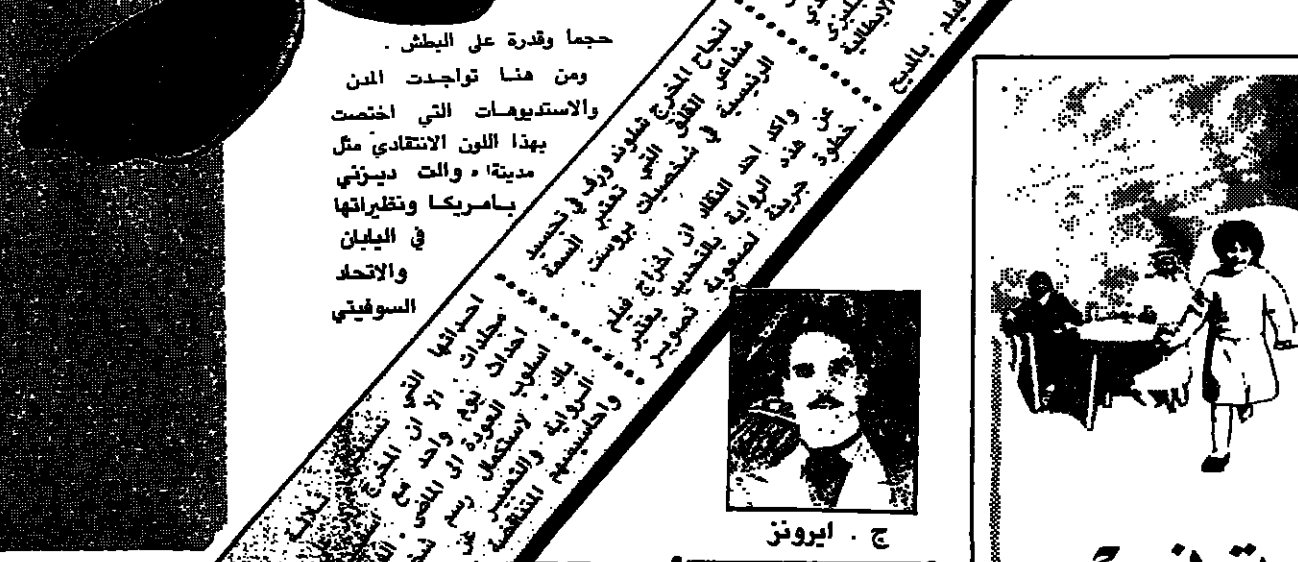 حجما وقدرة على البطش .
ومن هنا تواجدت المدن
والاستديوهات التي اختصت
بهذا اللون الانتقادي مثل
مدينة والت ديزني
بامريكا ونظيراتها
في اليابان
والاتحاد
السوفيتي
لنجاح المخرج شلوندورف في تجسيد
مشاعر القلق التي تعتبر السمة
الرئيسية في شخصيات بروست
واكد احد النقاد ان اخراج فيلم
عن هذه الرواية بالتحديد يعتبر
خطوة جريئة لصعوبة تصوير
احداثها التي
مجلدات . الا ان المخرج
احداث يوم واحد مع
اسلوب العودة الى الماضي
باك لاستكمال رسم
الرواية والتعبير
واحاسيسهم المتناقضة
الفيلم . بالديع
ج . ايرونز